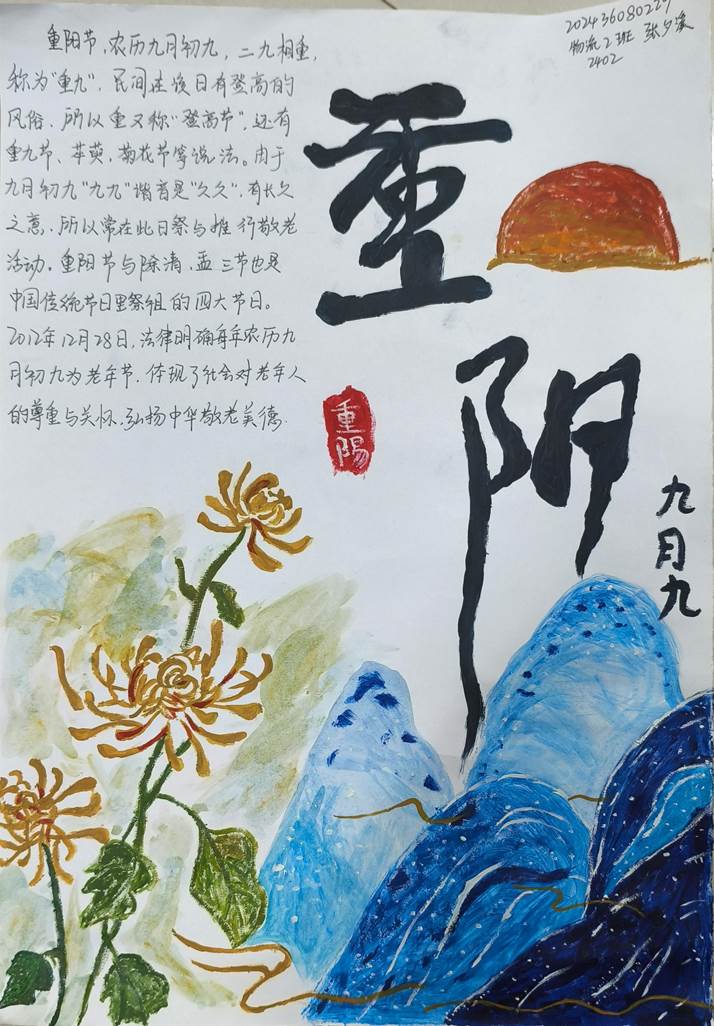 20243608022
物流2班 张夕溪
2402
重阳节,农历九月初九,二九相重,
称为"重九",民间在该日有登高的
风俗,所以重又称"登高节",还有
重九节、茱萸,菊花节等说法。由于
九月初九"九九"谐音是"久久",有长久
之意,所以常在此日祭与推行敬老
活动。重阳节与除清,盂三节也是
中国传统节日里祭组的四大节日。
2012年12月28日,法律明确每年农历九
月初九为老年节,体现了社会对老年人
的尊重与关怀,弘扬中华敬老美德.
重
阳
重
陽
九
月
九